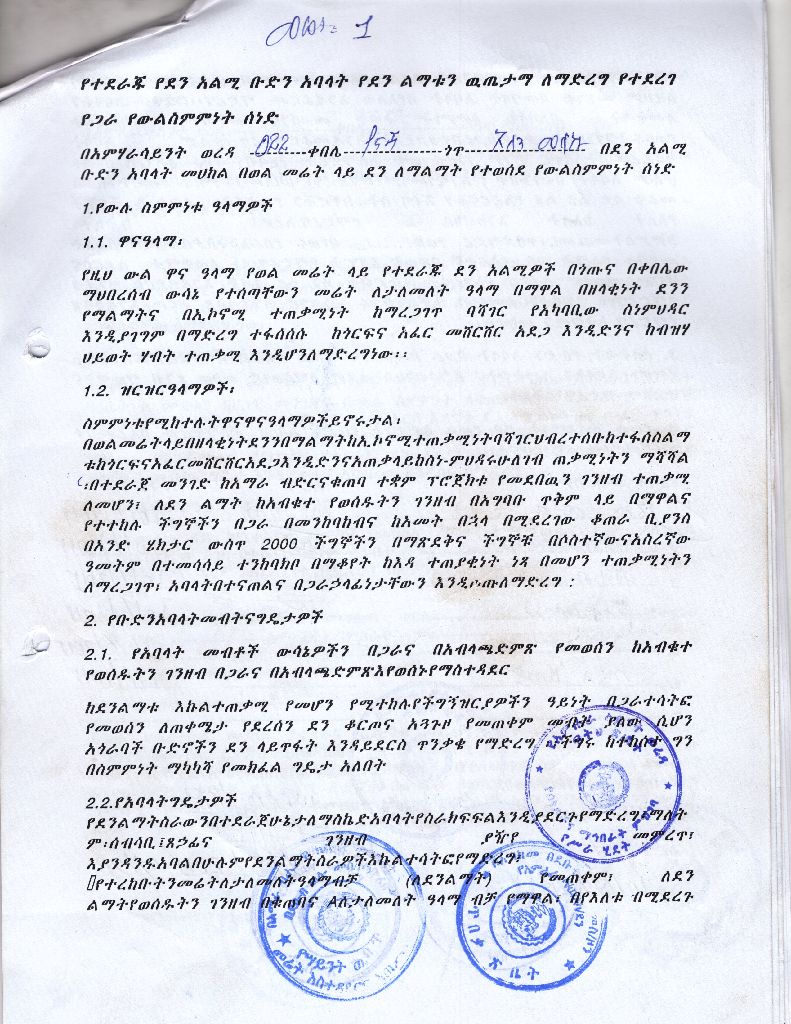 1
የተደራጁ የደን አልሚ ቡድን አባላት የደን ልማቱን ዉጤታማ ለማድረግ የተደረገ
የጋራ የውልስምምነት ሰነድ
በአምሃራሳይንት ወረዳ ቀበሌ ጎጥ በደን አልሚ
ቡድን አባላት መሀከል በወል መሬት ላይ ደን ለማልማት የተወሰደ የውልስምምነት ሰነድ
1.የውሉ ስምምነቱ ዓላማዎች
1.1. ዋናዓላማ፡
የዚህ ውል ዋና ዓላማ የወል መሬት ላይ የተደራጁ ደን አልሚዎች በጎጡና በቀበሌው
ማህበረሰብ ውሳኔ የተሰጣቸውን መሬት ለታለመለት ዓላማ በማዋል በዘላቂነት ደንን
የማልማትና በኢኮኖሚ ተጠቃሚነት ከማረጋገጥ ባሻገር የአካባቢው ስነምህዳር
እንዲያገግም በማድረግ ተፋሰሱ ከጎርፍና አፈር መሸርሸር አደጋ እንዲድንና ከብዝሃ
ህይወት ሃብት ተጠቃሚ እንዲሆንለማድረግነው፡፡
1.2. ዝርዝርዓላማዎች፡
ስምምነቱየሚከተሉትዋናዋናዓላማዎችይኖሩታል፡
በወልመሬትላይበዘላቂነትደንንበማልማትከኢኮኖሚተጠቃሚነትባሻገርህብረተሰቡከተፋሰስልማ
ቱከጎርፍናአፈርመሸርሸርአደጋእንዲድንናአጠቃላይከስነ-ምህዳሩሁለገብ ጠቃሚነትን ማሻሻል
፡በተደራጀ መንገድ ከአማራ ብድርናቁጠባ ተቋም ፕሮጀክቱ የመደበዉን ገንዘብ ተጠቃሚ
ለመሆን፣ ለደን ልማት ከአብቁተ የወሰዱትን ገንዘብ በአግባቡ ጥቅም ላይ በማዋልና
የተተከሉ ችግኞችን በጋራ በመንከባከብና ከአመት በኋላ በሚደረገው ቆጠራ ቢያንስ
በአንድ ሄክታር ውስጥ 2000 ችግኞችን በማጽደቅና ችግኞቹ በሶስተኛውናአስረኛው
ዓመትም በተመሳሳይ ተንከባክቦ በማቆየት ከእዳ ተጠያቂነት ነጻ በመሆን ተጠቃሚነትን
ለማረጋገጥ፣ አባላትበተናጠልና በጋራኃላፊነታቸውን እንዲወጡለማድረግ :
2. የቡድንአባላትመብትናግዴታዎች
2.1. የአባላት መብቶች ውሳኔዎችን በጋራና በአብላጫድምጽ የመወሰን ከአብቁተ
የወሰዱትን ገንዘብ በጋራና በአብላጫድምጽእየወሰኑየማስተዳደር
ከደንልማቱ እኩልተጠቃሚ የመሆን የሚተከሉየችግኝዝርያዎችን ዓይነት በጋራተሳትፎ
የመወሰን ለጠቀሜታ የደረሰን ደን ቆርጦና አጓጉዞ የመጠቀም መብት ያለው ሲሆን
አጎራባች ቡድኖችን ደን ላይጥፋት እንዳይደርስ ጥንቃቄ የማድረግ ችግሩ ከተከሰተ ግን
በስምምነት ማካካሻ የመክፈል ግዴታ አለበት
2.2.የአባላትግዴታዎች
የደንልማትስራውንበተደራጀሁኔታለማስኬድአባላትየስራክፍፍልእንዲያደርጉየማድረግ፤ማለት
ም፡ሰብሳቢ፤ጸኃፊና ገንዘብ ያዥየ መምረጥ፣
እያንዳንዱአባልበሁሉምየደንልማትስራዎችእኩልተሳትፎየማድረግ፣
የተረከቡትንመሬትለታለመለትዓላማብቻ (ለደንልማት) የመጠቀም፣ ለደን
ልማትየወሰዱትን ገንዘብ በቁጠባና ለታለመለት ዓላማ ብቻ የማዋል፣ በየእለቱ በሚደረጉ